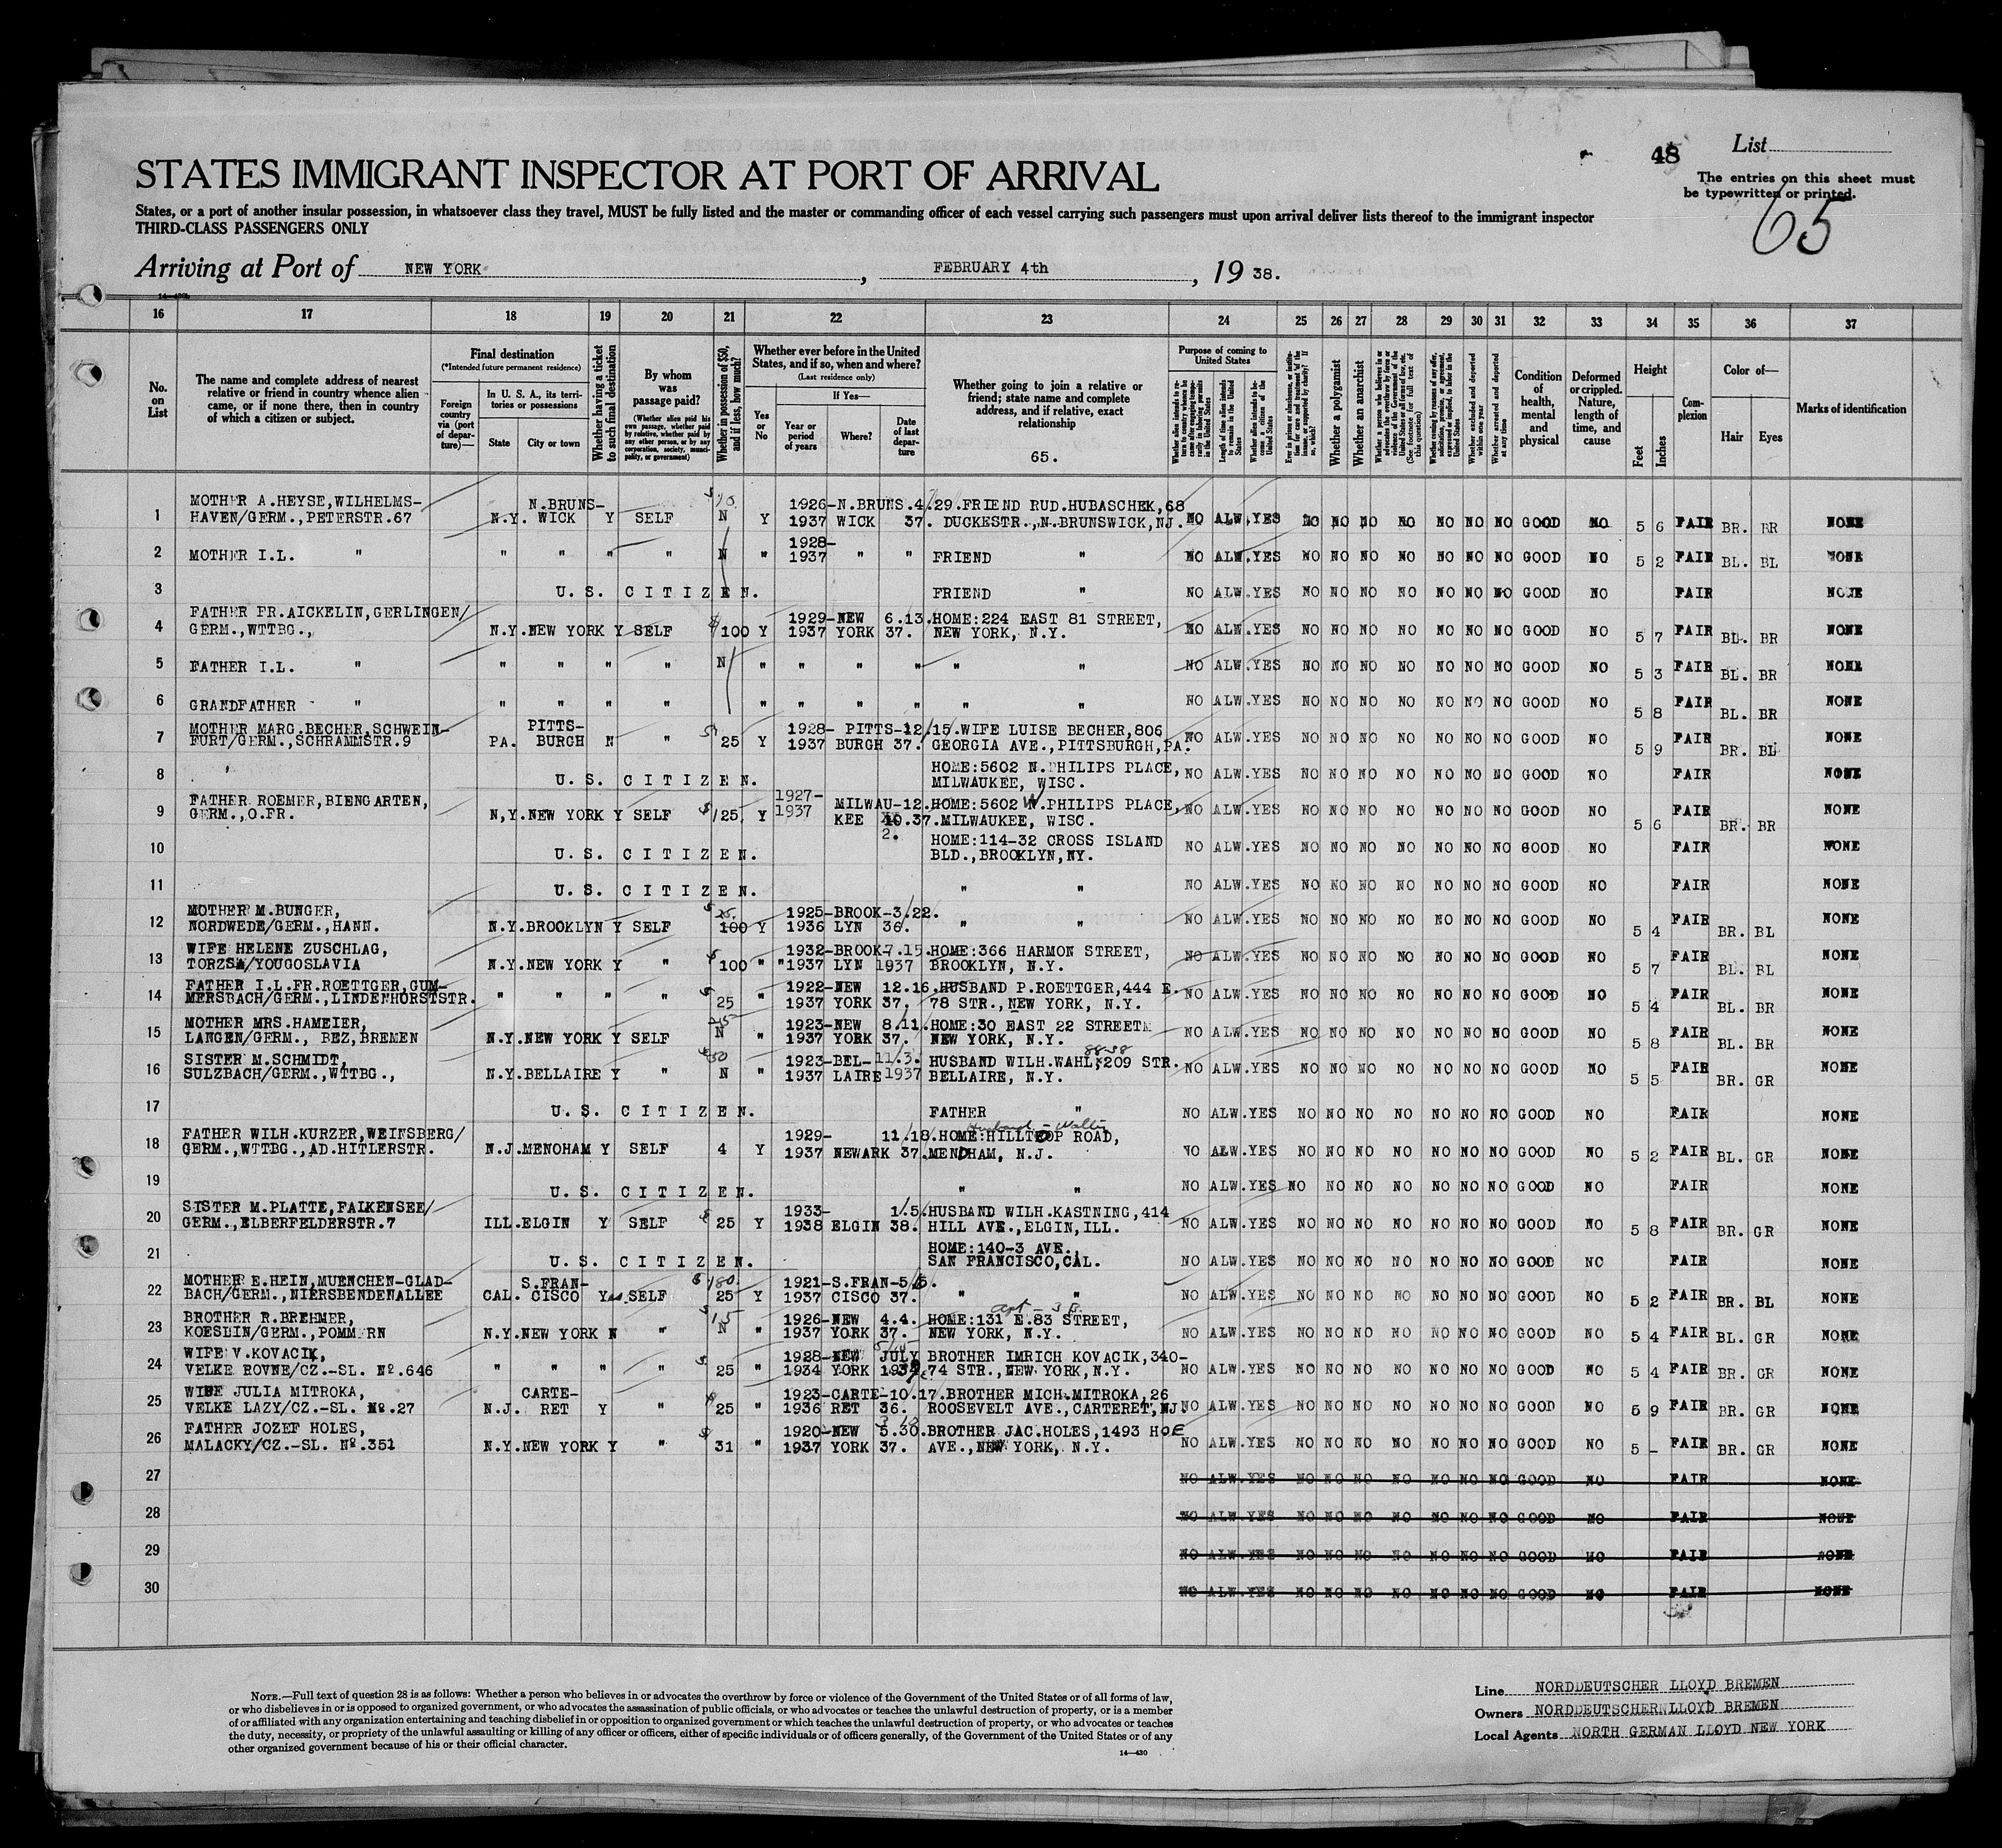 48
List
The entries on this sheet must
be typewritten or printed.
65
STATES IMMIGRANT INSPECTOR AT PORT OF ARRIVAL
States, or a port of another insular possession, in whatsoever class they travel, MUST be fully listed and the master or commanding officer of each vessel carrying such passengers must upon arrival deliver lists thereof to the immigrant inspector
THIRD-CLASS PASSENGERS ONLY
Arriving at Port of NEW YORK, FEBRUARY 4th, 19 38.
16 17 18 19 20 21 22 23 24 25 26 27 28 29 30 31 32 33 34 35 36 37
No. on List
The name and complete address of nearest relative or friend in country whence alien came, or if none there, then in country of which a citizen or subject.
Final destination
(*Intended future permanent residence)
Foreign country via (port of departure)—
In U. S. A., its territories or possessions
State City or town
Whether having a ticket to such final destination
By whom was passage paid?
(Whether alien paid his own passage, whether paid by relative, whether paid by any other person, or by any corporation, society, municipality, or government)
Whether in possession of $50, and if less, how much?
Whether ever before in the United States, and if so, when and where?
(Last residence only)
Yes or No
If Yes—
Year or period of years Where? Date of last departure
Whether going to join a relative or friend; state name and complete address, and if relative, exact relationship
65.
Purpose of coming to United States
Length of time alien intends to remain in the United States
Whether alien intends to become a citizen of the United States
Whether a polygamist
Whether an anarchist
(See footnote for full text of this question)
Whether excluded and deported within one year
Whether arrested and deported at any time
Condition of health, mental and physical
Deformed or crippled. Nature, length of time, and cause
Height
Feet Inches
Complexion
Color of—
Hair Eyes
Marks of identification
1 MOTHER A.HEYSE,WILHELMS- N.BRUNS- 1926-N.BRUNS.4/29.FRIEND RUD.HUBASCHEK,68
HAVEN/GERM.,PETERSTR.67 N.Y. WICK Y SELF N Y 1937 WICK 37. DUCKESTR.,N.BRUNSWICK,NJ. NO ALW.YES NO NO NO NO NO NO NO GOOD NO 5 6 FAIR BR. BR NONE
2 MOTHER I.L. " " " " " N " 1928-1937 " " FRIEND " NO ALW.YES NO NO NO NO NO NO NO GOOD NO 5 2 FAIR BL. BL NONE
3 U.S. CITIZEN. FRIEND " NO ALW.YES NO NO NO NO NO NO NO GOOD NO FAIR NONE
4 FATHER FR.AICKELIN,GERLINGEN/ 1929-NEW 6.13.HOME:224 EAST 81 STREET,
GERM.,WTTBG., N.Y.NEW YORK Y SELF $100 Y 1937 YORK 37. NEW YORK, N.Y. NO ALW.YES NO NO NO NO NO NO NO GOOD NO 5 7 FAIR BL. BR NONE
5 FATHER I.L. " " " " " N " " " " " " NO ALW.YES NO NO NO NO NO NO NO GOOD NO 5 3 FAIR BL. BR NONE
6 GRANDFATHER " " " " " " " " " " " NO ALW.YES NO NO NO NO NO NO NO GOOD NO 5 8 FAIR BL. BR NONE
7 MOTHER MARG.BECHER,SCHWEIN- PITTS- 1928- PITTS-12/15.WIFE LUISE BECHER,806
FURT/GERM.,SCHRAMMSTR.9 PA. BURGH N " 25 Y 1937 BURGH 37. GEORGIA AVE.,PITTSBURGH,PA. NO ALW.YES NO NO NO NO NO NO NO GOOD NO 5 9 FAIR BR. BL NONE
8 U.S. CITIZEN. HOME:5602 N.PHILIPS PLACE,
MILWAUKEE, WISC. NO ALW.YES NO NO NO NO NO NO NO GOOD NO FAIR NONE
9 FATHER ROEMER,BIENGARTEN, 1927- MILWAU-12.HOME:5602 W.PHILIPS PLACE,
GERM.,O.FR. N,Y.NEW YORK Y SELF $125 Y 1937 KEE 37.MILWAUKEE, WISC. NO ALW.YES NO NO NO NO NO NO NO GOOD NO 5 6 FAIR BR. BR NONE
2.
10 U.S. CITIZEN. HOME:114-32 CROSS ISLAND
BLD.,BROOKLYN,NY. NO ALW.YES NO NO NO NO NO NO NO GOOD NO FAIR NONE
11 U.S. CITIZEN. " " NO ALW.YES NO NO NO NO NO NO NO GOOD NO FAIR NONE
12 MOTHER M.BUNGER, $25. 1925-BROOK-3/22.
NORDWEDE/GERM.,HANN. N.Y.BROOKLYN Y SELF 100 Y 1936 LYN 36. " " NO ALW.YES NO NO NO NO NO NO NO GOOD NO 5 4 FAIR BR. BL NONE
13 WIFE HELENE ZUSCHLAG, 1932-BROOK-7.15.HOME:366 HARMON STREET,
TORZSA/YOUGOSLAVIA N.Y.NEW YORK Y " $100 " "1937 LYN 1937 BROOKLYN, N.Y. NO ALW.YES NO NO NO NO NO NO NO GOOD NO 5 7 FAIR BL. BL NONE
14 FATHER I.L.FR.ROETTGER,GUM- 1922-NEW 12.16.HUSBAND P.ROETTGER,444 E.
MERSBACH/GERM.,LINDENHORSTSTR. " " " " $25 " 1937 YORK 37. 78 STR.,NEW YORK, N.Y. NO ALW.YES NO NO NO NO NO NO NO GOOD NO 5 4 FAIR BL. BR NONE
15 MOTHER MRS.HAMEIER, 1923-NEW 8.11.HOME:30 EAST 22 STREET
LANGEN/GERM., BEZ,BREMEN N.Y.NEW YORK Y SELF N " 1937 YORK 37. NEW YORK, N.Y. NO ALW.YES NO NO NO NO NO NO NO GOOD NO 5 8 FAIR BL. BR NONE
16 SISTER M.SCHMIDT, $50 1923-BEL-11/3. HUSBAND WILH.WAHL, 88-38 209 STR.
SULZBACH/GERM.,WTTBG., N.Y.BELLAIRE Y " N " 1937 LAIRE 1937 BELLAIRE, N.Y. NO ALW.YES NO NO NO NO NO NO NO GOOD NO 5 5 FAIR BR. GR NONE
17 U.S. CITIZEN. FATHER " NO ALW.YES NO NO NO NO NO NO NO GOOD NO FAIR NONE
18 FATHER WILH.KURZER,WEINSBERG/ 1929- 11.18.HOME:HILLTOP ROAD,
GERM.,WTTBG.,AD.HITLERSTR. N.J.MENOHAM Y SELF 4 Y 1937 NEWARK 37.MENDHAM, N.J. NO ALW.YES NO NO NO NO NO NO NO GOOD NO 5 2 FAIR BL. GR NONE
19 U.S. CITIZEN. " " NO ALW.YES NO NO NO NO NO NO NO GOOD NO FAIR NONE
20 SISTER M.PLATTE,FALKENSEE/ 1933- 1.5.HUSBAND WILH.KASTNING,414
GERM.,ELBERFELDERSTR.7 ILL.ELGIN Y SELF $25 Y 1938 ELGIN 38. HILL AVE.,ELGIN,ILL. NO ALW.YES NO NO NO NO NO NO NO GOOD NO 5 8 FAIR BR. GR NONE
21 U.S. CITIZEN. HOME:140-3 AVE.,
SAN FRANCISCO,CAL. NO ALW.YES NO NO NO NO NO NO NO GOOD NO FAIR NONE
22 MOTHER E.HEIN,MUENCHEN-GLAD- S.FRAN- $180. 1921-S.FRAN-5/6.
BACH/GERM.,NIERSBENDENALLEE CAL. CISCO Y SELF 25 Y 1937 CISCO 37. " " NO ALW.YES NO NO NO NO NO NO NO GOOD NO 5 2 FAIR BR. BL NONE
23 BROTHER R.BREHMER, $15 1926-NEW 4.4. HOME:131 E.83 STREET,
KOESLIN/GERM.,POMMERN N.Y.NEW YORK N " N " 1937 YORK 37. NEW YORK, N.Y. NO ALW.YES NO NO NO NO NO NO NO GOOD NO 5 4 FAIR BL. GR NONE
24 WIFE V.KOVACIK, 1928-NEW JULY BROTHER IMRICH KOVACIK,340-
VELKE ROVNE/CZ.-SL. Nº.646 " " " " 25 " 1934 YORK 74 STR.,NEW YORK,N.Y. NO ALW.YES NO NO NO NO NO NO NO GOOD NO 5 4 FAIR BR. GR NONE
25 WIFE JULIA MITROKA, CARTE- 1923-CARTE-10.17.BROTHER MICH.MITROKA,26
VELKE LAZY/CZ.-SL. Nº.27 N.J. RET Y " 25 " 1936 RET 36. ROOSEVELT AVE.,CARTERET,NJ. NO ALW.YES NO NO NO NO NO NO NO GOOD NO 5 9 FAIR BR. GR NONE
26 FATHER JOZEF HOLES, 1920-NEW 5.30.BROTHER JAC.HOLES,1493 HOE
MALACKY/CZ.-SL. Nº.351 N.Y.NEW YORK Y " $31 " 1937 YORK 37. AVE.,NEW YORK, N.Y. NO ALW.YES NO NO NO NO NO NO NO GOOD NO 5 - FAIR BR. GR NONE
27 NO ALW.YES NO NO NO NO NO NO NO GOOD NO FAIR NONE
28 NO ALW.YES NO NO NO NO NO NO NO GOOD NO FAIR NONE
29 NO ALW.YES NO NO NO NO NO NO NO GOOD NO FAIR NONE
30 NO ALW.YES NO NO NO NO NO NO NO GOOD NO FAIR NONE
NOTE.—Full text of question 28 is as follows: Whether a person who believes in or advocates the overthrow by force or violence of the Government of the United States or of all forms of law,
or who disbelieves in or is opposed to organized government, or who advocates the assassination of public officials, or who advocates or teaches the unlawful destruction of property, or is a member
of or affiliated with any organization entertaining and teaching disbelief in or opposition to organized government or which teaches the unlawful destruction of property, or who advocates or teaches
the duty, necessity, or propriety of the unlawful assaulting or killing of any officer or officers, either of specific individuals or of officers generally, of the Government of the United States or of any
other organized government because of his or their official character.
14—430
Line NORDDEUTSCHER LLOYD BREMEN
Owners NORDDEUTSCHERNLLOYD BREMEN
Local Agents NORTH GERMAN LLOYD NEW YORK